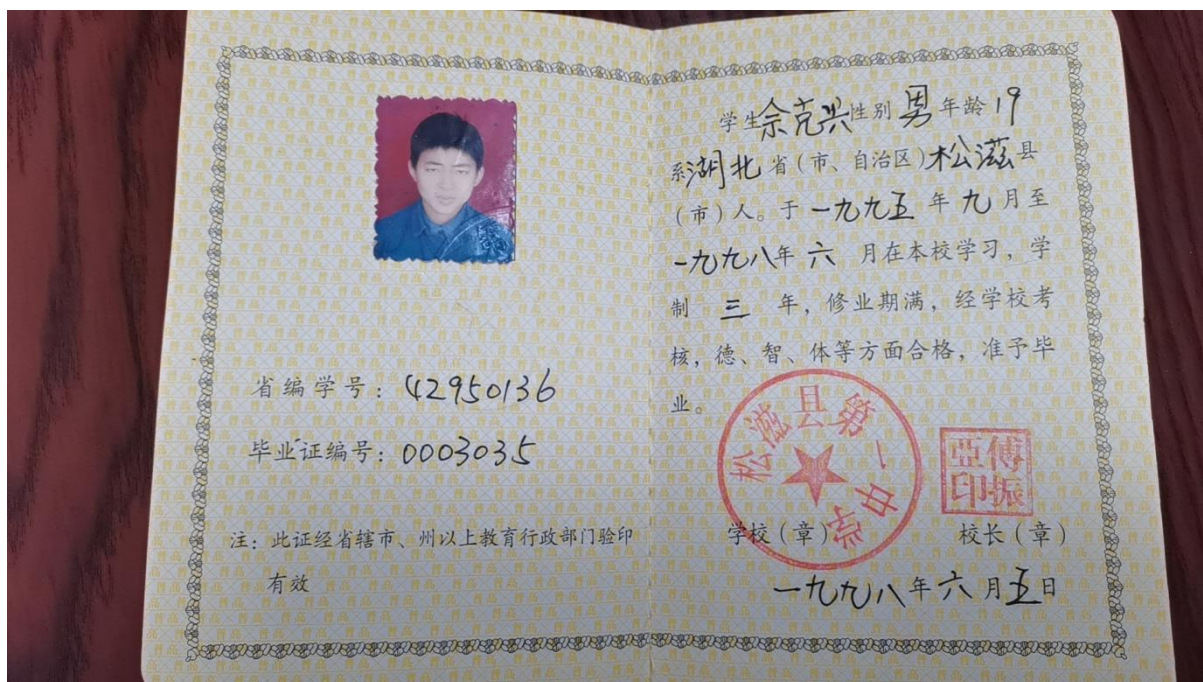 省编学号：42950136
毕业证编号：0003035
注：此证经省辖市、州以上教育行政部门验印
有效
学生佘克兴性别男年龄19
系湖北省（市、自治区）松滋县
（市）人。于一九九五年九月至
一九九八年六月在本校学习，学
制三年，修业期满，经学校考
核，德、智、体等方面合格，准予毕
业。
松滋县第一中学
傅振亞印
学校（章）校长（章）
一九九八年六月五日